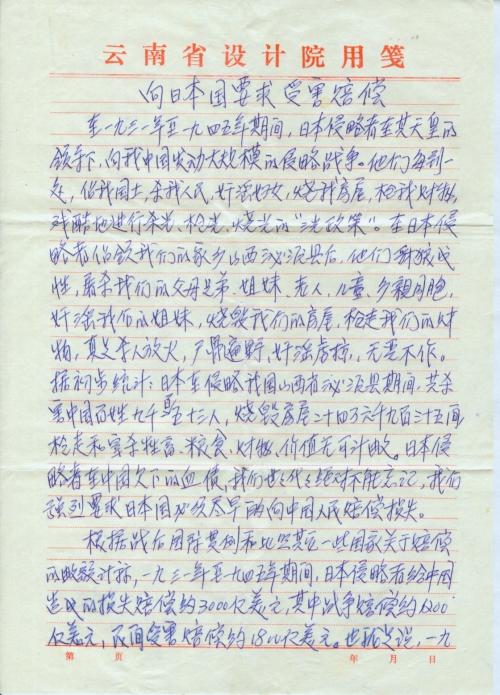 云南省设计院用笺
向日本国要求受害赔偿
在一九三一年至一九四五年期间，日本侵略者在其天皇的
领导下，向我中国发动大规模的侵略战争。他们每到一
处，佔我国土，杀我人民，奸淫妇女，烧我房屋，抢我财物，
残酷地进行杀光、抢光、烧光的"三光政策"。在日本侵
略者佔领我们的家乡山西沁源县后，他们兽狼成
性，屠杀我们的父母兄弟、姐妹、老人、儿童、乡亲同胞，
奸淫我们的姐妹，烧毁我们的房屋，抢走我们的财
物，真是杀人放火，尸骨遍野，奸淫虏掠，无恶不作。
据初步统计：日本在侵略我国山西省沁源县期间，共杀
害中国百姓九千 五十三人，烧毁房屋二十四万六千九百三十五间，
抢走和宰杀牲畜、粮食、财物、价值无可计数。日本侵
略者在中国欠下的血债，我们世世代代绝对不能忘记，我们
强烈要求日本国必须尽早的向中国人民赔偿损失。
根据战后国际惯例和比照其它一些国家关于赔偿
的数额计称，一九三一年至一九四五年期间，日本侵略者给中国
造成的损失赔偿约3000亿美元，其中战争赔偿约1200
亿美元，民间受害赔偿约1800亿美元。也就是说，一九
第 页 年 月 日